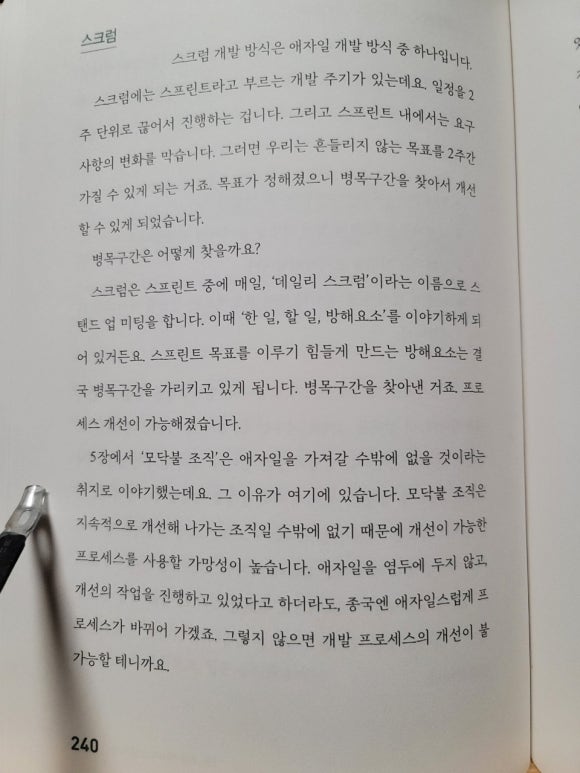 스크럼
스크럼 개발 방식은 애자일 개발 방식 중 하나입니다.
스크럼에는 스프린트라고 부르는 개발 주기가 있는데요. 일정을 2
주 단위로 끊어서 진행하는 겁니다. 그리고 스프린트 내에서는 요구
사항의 변화를 막습니다. 그러면 우리는 흔들리지 않는 목표를 2주간
가질 수 있게 되는 거죠. 목표가 정해졌으니 병목구간을 찾아서 개선
할 수 있게 되었습니다.
병목구간은 어떻게 찾을까요?
스크럼은 스프린트 중에 매일, ‘데일리 스크럼’이라는 이름으로 스
탠드 업 미팅을 합니다. 이때 ‘한 일, 할 일, 방해요소’를 이야기하게 되
어 있거든요. 스프린트 목표를 이루기 힘들게 만드는 방해요소는 결
국 병목구간을 가리키고 있게 됩니다. 병목구간을 찾아낸 거죠. 프로
세스 개선이 가능해졌습니다.
5장에서 ‘모닥불 조직’은 애자일을 가져갈 수밖에 없을 것이라는
취지로 이야기했는데요. 그 이유가 여기에 있습니다. 모닥불 조직은
지속적으로 개선해 나가는 조직일 수밖에 없기 때문에 개선이 가능한
프로세스를 사용할 가망성이 높습니다. 애자일을 염두에 두지 않고,
개선의 작업을 진행하고 있었다고 하더라도, 종국엔 애자일스럽게 프
로세스가 바뀌어 가겠죠. 그렇지 않으면 개발 프로세스의 개선이 불
가능할 테니까요.
240